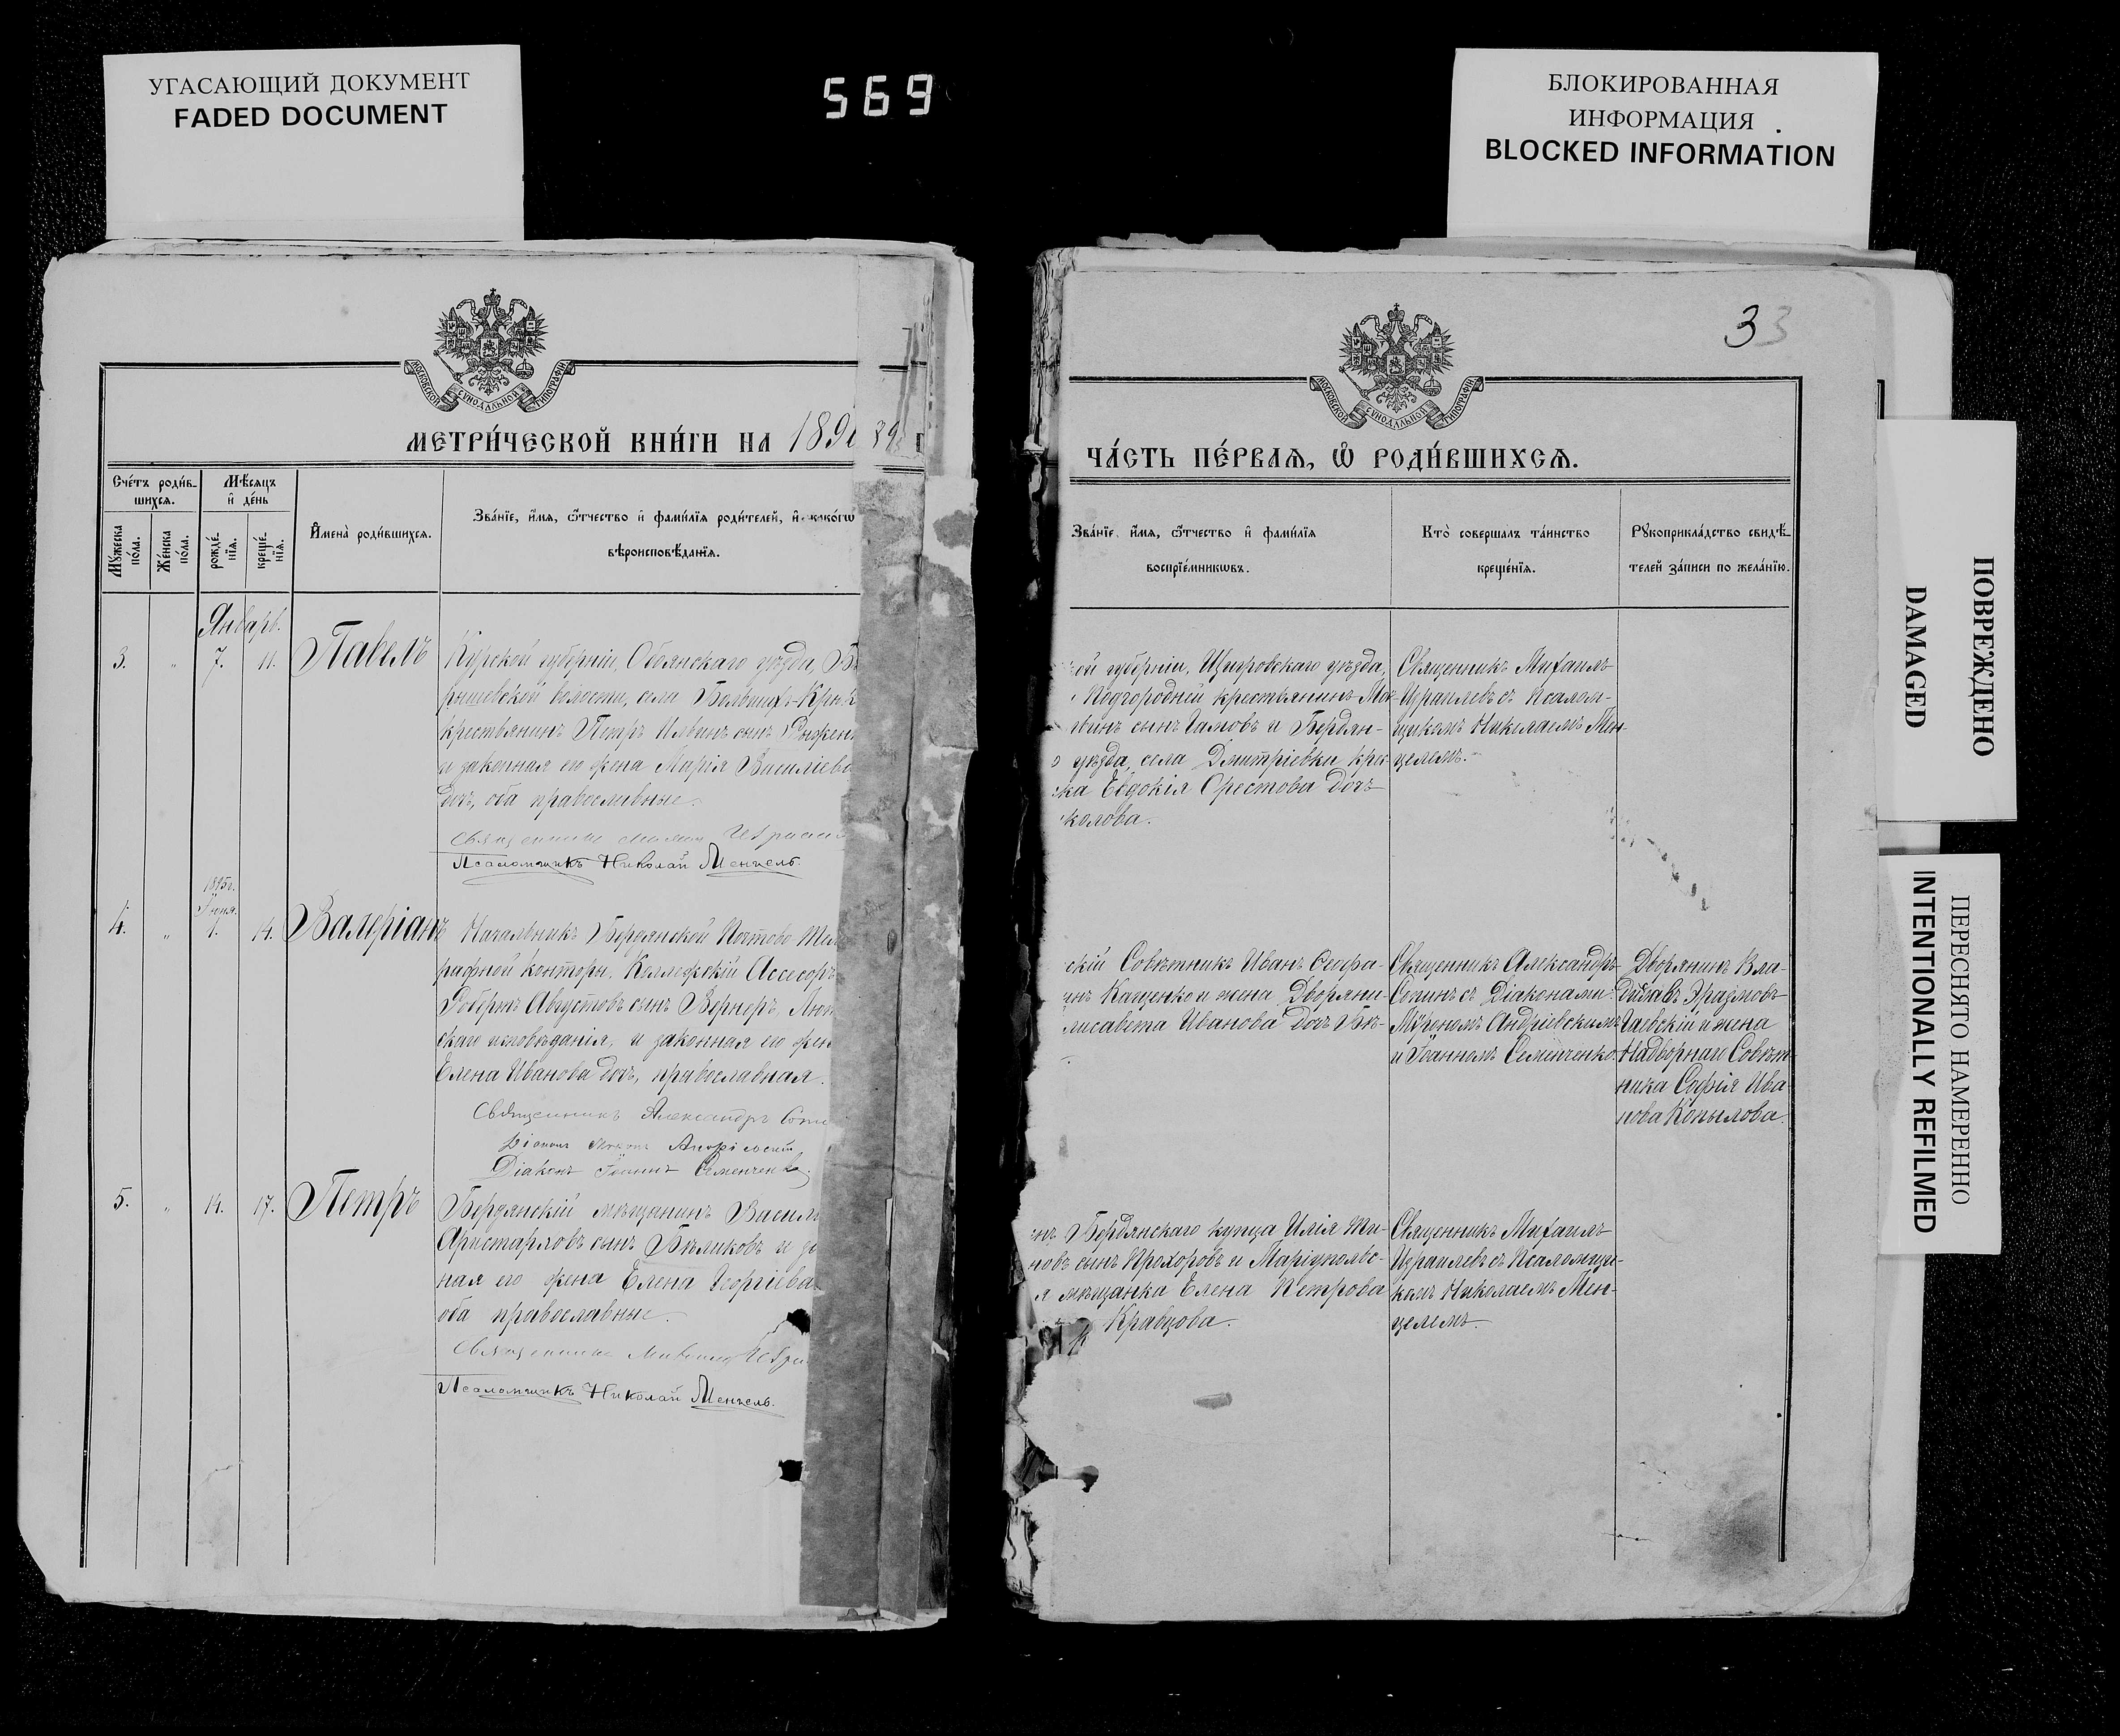 УГАСАЮЩИЙ ДОКУМЕНТ
FADED DOCUMENT
569
БЛОКИРОВАННАЯ
ИНФОРМАЦИЯ
BLOCKED INFORMATION
МОСКОВСКОЙ СѴНОДАЛЬНОЙ ТИПОГРАФІИ
МЕТРИ́ЧЕСКОЙ КНИ́ГИ НА 189
Сче́тъ роди́в-
шихсѧ.
Мѣ́сѧцъ
и҆ де́нь
Мꙋ́жеска
по́ла.
Же́нска
по́ла.
рожде́-
нїѧ.
креще́-
нїѧ.
И҆мена̀ роди́вшихсѧ.
Зва́нїе, и҆́мѧ, ѻ҆́тчество и҆ фами́лїѧ роди́телей, и҆ како́гѡ
вѣроисповѣ́данїѧ.
Январь.
3. " 7. 11. Павелъ Курской губерніи, Обоянскаго уѣзда,
рышевской волости, села
крестьянинъ Петръ Ильинъ сынъ
и законная его жена Марія Василіева
дочь, оба православные.
Священникъ
Псаломщикъ Николай Менцель.
1895г.
Іюня.
4. " 1. 14. Валеріанъ Начальникъ Бердянской Почтово
рафной конторы, Коллежскій Ассесоръ
Робертъ Августовъ сынъ Вернеръ,
скаго исповѣданія, и законная его
Елена Иванова дочь, православная.
Священникъ Александръ
Діаконъ Андріевскій
Діаконъ Іоаннъ Семенченко
5. " 14. 17. Петръ Бердянскій мѣщанинъ
Аристарховъ сынъ Бѣликовъ и
ная его жена Елена Георгіева
оба православные.
Священникъ
Псаломщикъ Николай Менцель.
33
МОСКОВСКОЙ СѴНОДАЛЬНОЙ ТИПОГРАФІИ
ЧА́СТЬ ПЕ́РВАѦ, Ѡ҆ РОДИ́ВШИХСѦ.
Зва́нїе, и҆́мѧ, ѻ҆́тчество и҆ фами́лїѧ
воспрїе́мникѡвъ.
Кто̀ соверша́лъ та́инство
креще́нїѧ.
Рꙋкоприкла́дство свидѣ́-
телей за́писи по жела́нїю.
губерніи, Щигровскаго уѣзда,
Подгородней крестьянинъ
сынъ Чамовъ и Бердян-
уѣзда, села Дмитріевки
Евдокія Орестова дочь
колова.
Священникъ Михаилъ
Израилевъ съ Псалом-
щикомъ Николаемъ Мен-
целемъ.
скій Совѣтникъ Иванъ
Кащенко и жена Дворяни-
лисавета Иванова дочь
Священникъ Александръ
Сопинъ съ Діаконами:
Мѵрономъ Андріевскимъ
и Іоанномъ Семенченко.
Дворянинъ Вла-
диславъ Эразмовъ
Чаевскій и жена
Надворнаго Совѣт-
ника Софія Ива-
нова Копылова.
Бердянскаго купца Илія
новъ сынъ Прохоровъ и Маріупольс-
я мѣщанка Елена Петрова
Кравцова.
Священникъ Михаилъ
Израилевъ съ Псаломщи-
комъ Николаемъ Мен-
целемъ.
ПОВРЕЖДЕНО
DAMAGED
ПЕРЕСНЯТО НАМЕРЕННО
INTENTIONALLY REFILMED